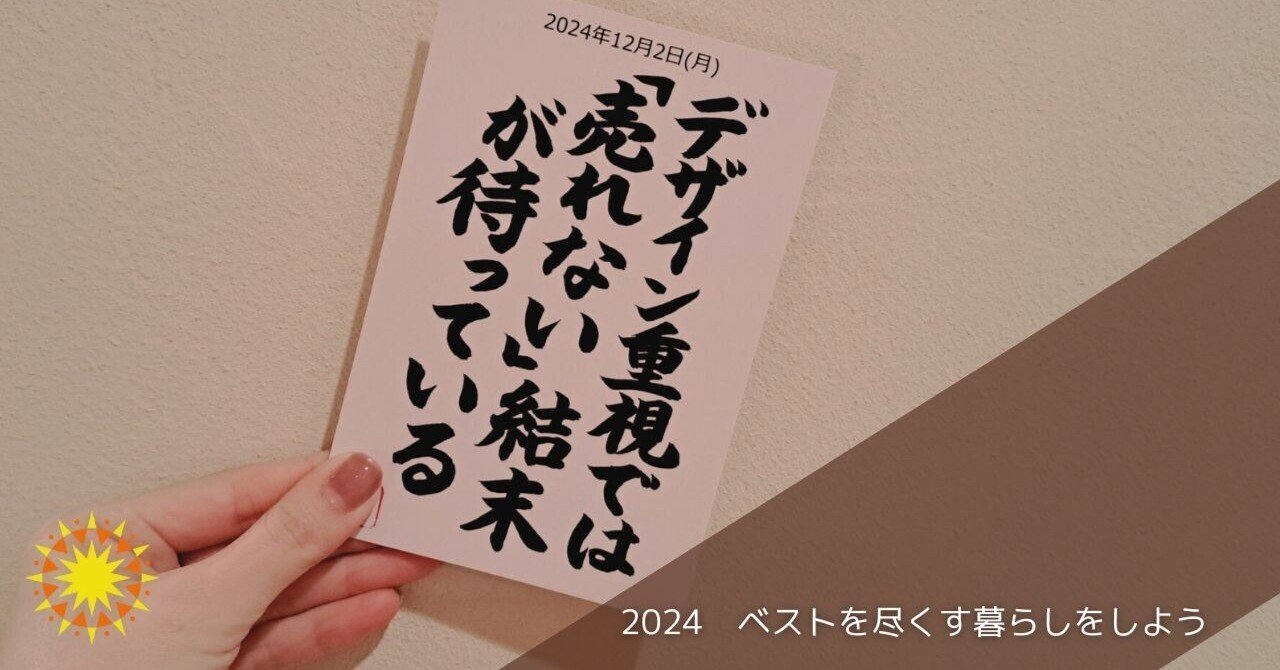 2024年12月2日(月)
デザイン重視では
「売れない」結末
が待っている
2024 ベストを尽くす暮らしをしよう